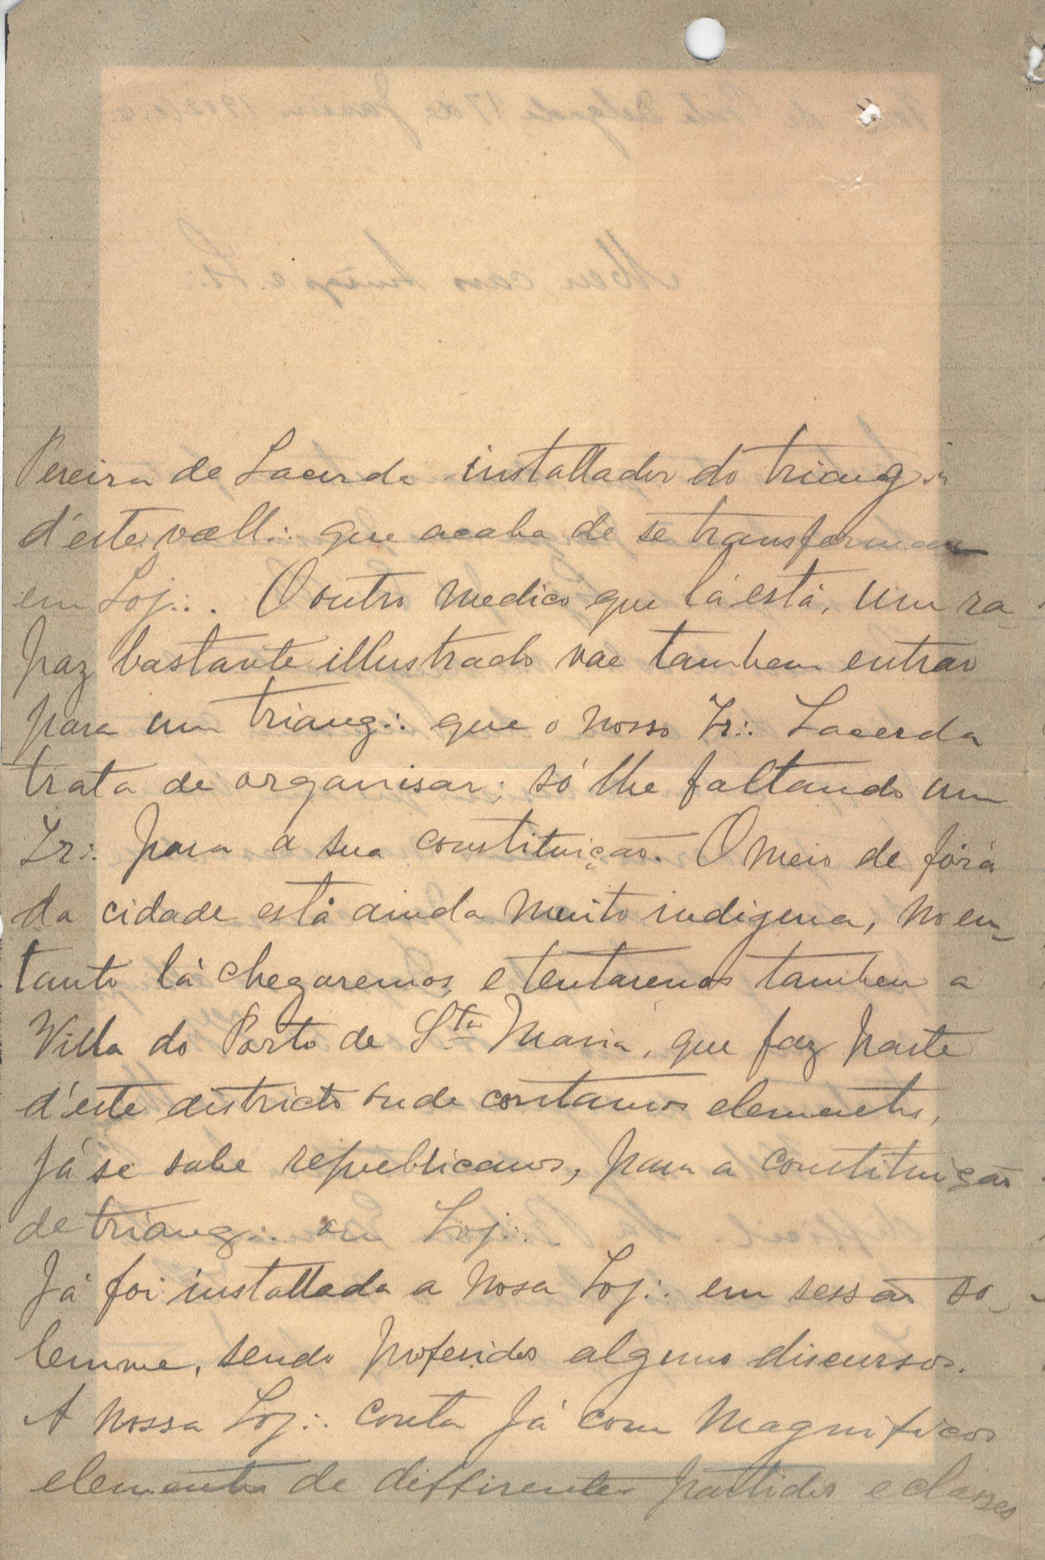 Pereira de Lacerda installador do triang∴
d'este vall∴ que acaba de se transformar
em Loj∴. O outro medico que lá está, um ra-
paz bastante illustrado vae tambem entrar
para um triang∴ que o nosso Ir∴ Lacerda
trata de organisar; só lhe faltando um
Ir∴ para a sua constituição. O meio de fóra
da cidade está ainda muito indigena, no en-
tanto lá chegaremos e tentaremos tambem a
Villa do Porto de Sta Maria, que faz parte
d'este districto onde contamos elementos,
já se sabe republicanos, para a constituição
de triang∴ ou Loj∴
Já foi installada a nosa Loj∴ em sessão so-
lemne, sendo proferidos alguns discursos.
A nossa Loj∴ conta já com magnificos
elementos de differentes partidos e classes